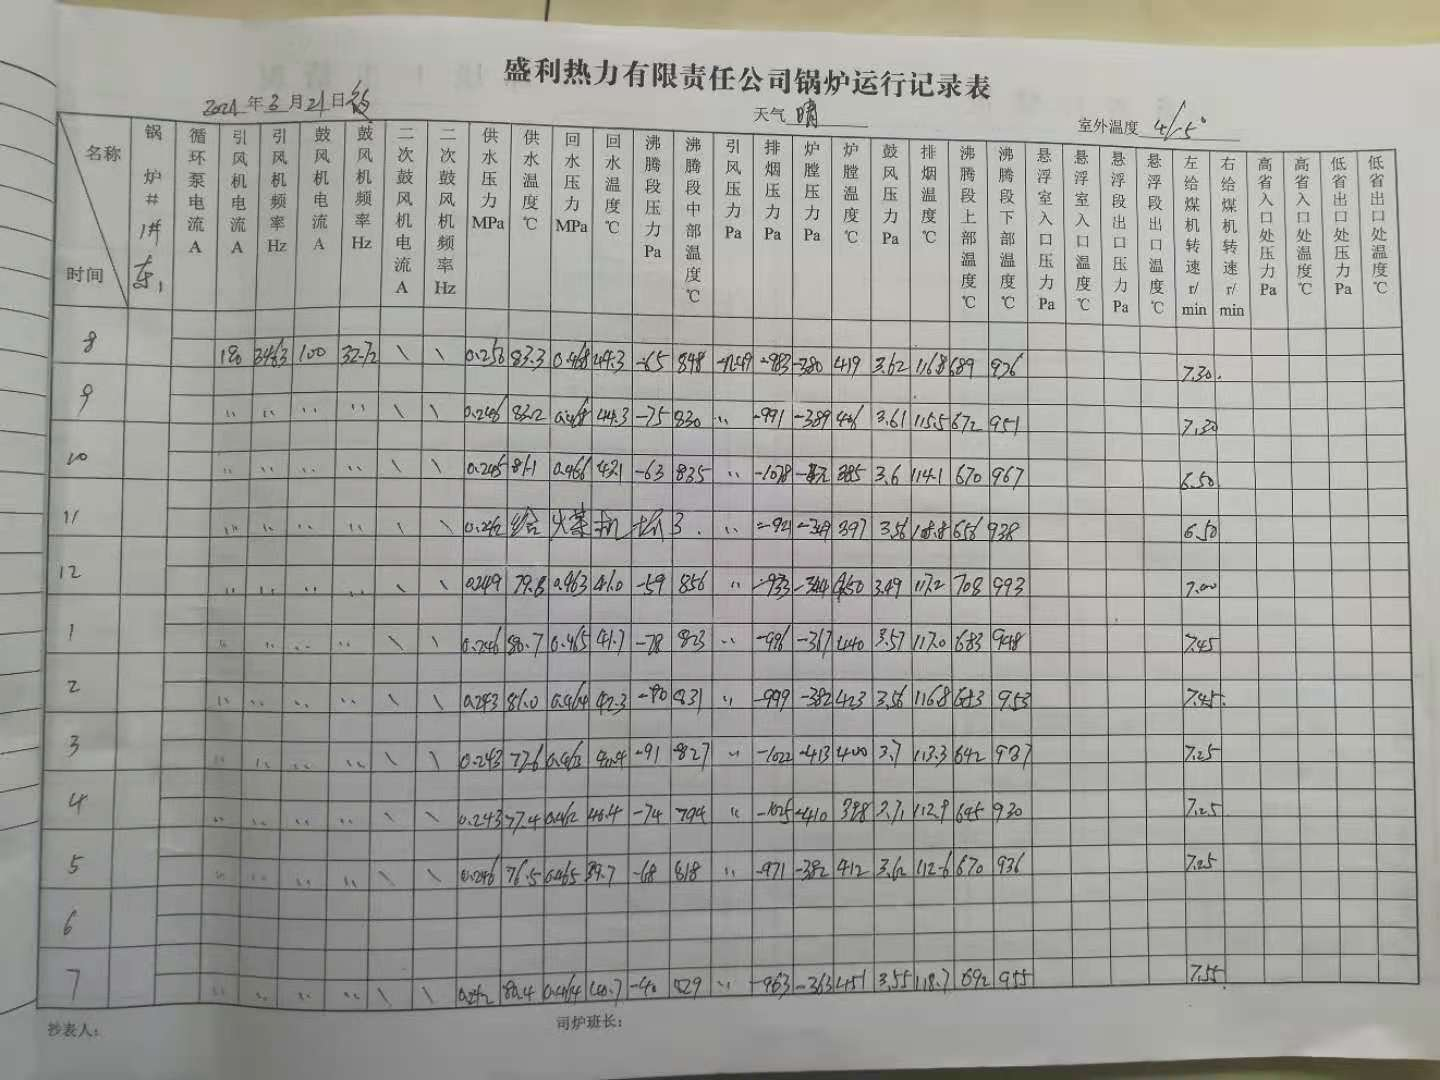 盛利热力有限责任公司锅炉运行记录表
2021年3月21日 天气 晴 室外温度 4/-5°
名称 时间 锅炉# 1# 东1 循环泵电流A 引风机电流A 引风机频率Hz 鼓风机电流A 鼓风机频率Hz 二次鼓风机电流A 二次鼓风机频率Hz 供水压力MPa 供水温度℃ 回水压力MPa 回水温度℃ 沸腾段压力Pa 沸腾段中部温度℃ 引风压力Pa 排烟压力Pa 炉膛压力Pa 炉膛温度℃ 鼓风压力Pa 排烟温度℃ 沸腾段上部温度℃ 沸腾段下部温度℃ 悬浮室入口压力Pa 悬浮室入口温度℃ 悬浮段出口压力Pa 悬浮段出口温度℃ 左给煤机转速r/min 右给煤机转速r/min 高省入口处压力Pa 高省入口处温度℃ 低省出口处压力Pa 低省出口处温度℃
8 100 32.72 \ \ 0.250 83.3 0.468 44.3 -65 848 -983 -380 419 3.62 116.8 689 976 7.30
9 〃 〃 〃 〃 \ \ 0.246 83.2 0.468 44.3 -75 830 〃 -991 -389 3.61 115.5 672 951 7.30
10 〃 〃 〃 〃 \ \ 0.245 81.1 0.466 43.1 -63 835 〃 -1078 385 3.6 114.1 670 967 6.50
11 〃 〃 〃 〃 \ \ 0.242 给煤机坏了. 〃 -349 397 3.56 108.8 656 938 6.50
12 〃 〃 〃 〃 \ \ 0.249 79.8 0.463 41.0 -59 856 〃 -933 -344 450 3.49 117.2 708 993 7.00
1 〃 〃 〃 〃 \ \ 0.246 80.7 0.465 41.7 -78 823 〃 -996 -367 440 3.57 117.0 683 948 7.45
2 〃 〃 〃 〃 \ \ 0.243 81.0 0.464 42.3 -80 831 〃 -999 -382 423 3.56 116.8 683 953 7.45
3 〃 〃 〃 〃 \ \ 0.243 77.6 0.463 40.4 -91 827 〃 -1022 -413 400 3.7 113.3 642 937 7.25
4 〃 〃 〃 〃 \ \ 0.243 77.4 0.462 40.4 -74 794 〃 -1025 -410 398 3.71 112.9 645 930 7.25
5 〃 〃 〃 〃 \ \ 0.246 76.5 0.465 39.7 -68 818 〃 -971 -382 412 3.62 112.6 670 936 7.25
6
7 〃 〃 〃 〃 \ \ 0.242 80.4 0.464 40.7 -40 829 〃 -963 -363 451 3.55 118.7 692 955 7.55
抄表人: 司炉班长: